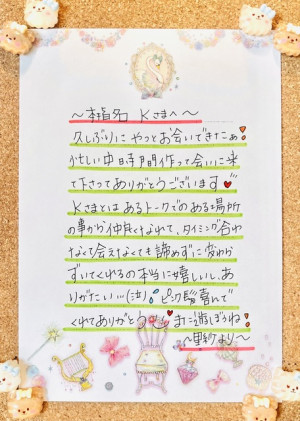 ～本指名 Kさまへ～
久しぶりにやっとお会いできたぁ!
忙しい中時間作って会いに来
て下さってありがとうございます♥
Kさまとはあるトークでのある場所
の事から仲良くなれて、タイミング合わ
なくて会えなくても諦めずに変わら
ずいてくれるの本当に嬉しいし、あ
りがたい…(泣) ピンク髪喜んで
くれてありがとう また遊ぼうね!
～里紗より～